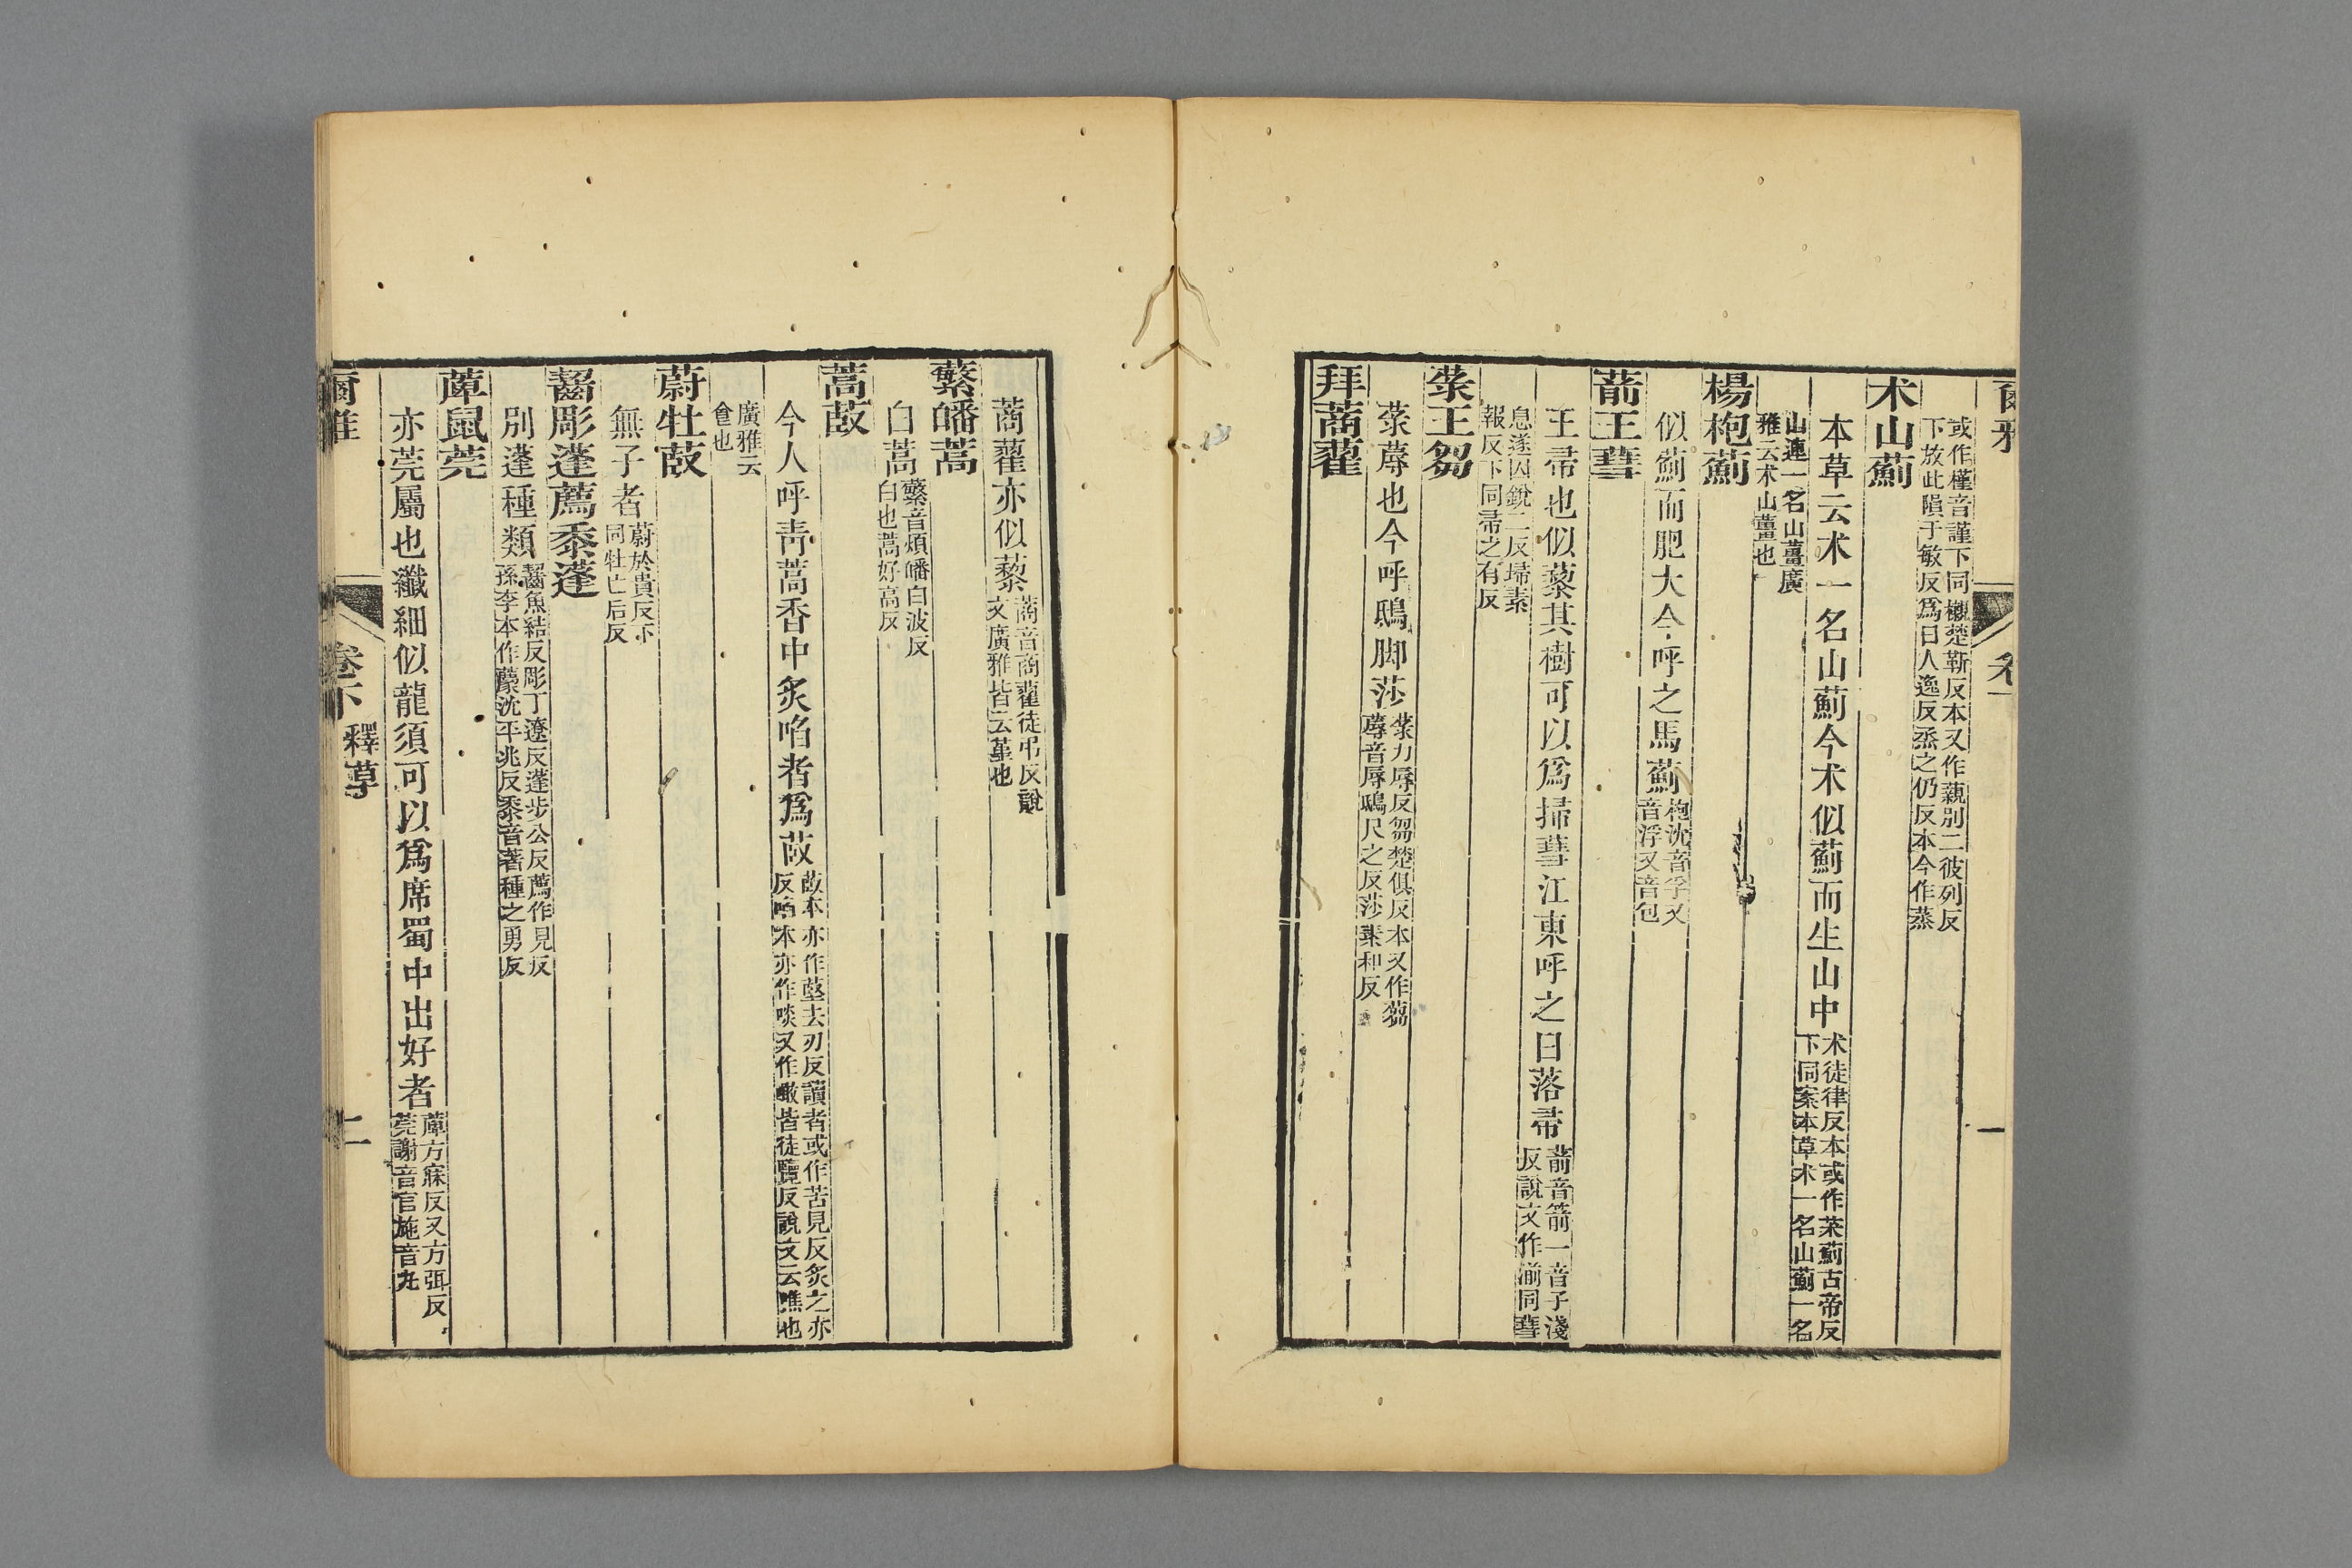 爾雅
卷
一
或作槿音謹下同櫬楚靳反本又作藽別二彼列反
下放此隕于敏反爲曰人逸反烝之仍反本今作蒸
术山薊
本草云术一名山薊今术似薊而生山中
术徒律反本或作荣薊古帝反
下同案本草术一名山薊一名
山連一名山薑廣
雅云术山薑也
楊枹薊
似薊而肥大今呼之馬薊
枹沈音孚又
音浮又音包
葥王彗
王帚也似藜其樹可以爲掃彗江東呼之曰落帚
葥音箭一音子淺
反說文作湔同彗
息遂囚銳二反埽素
報反下同帚之有反
菉王芻
菉蓐也今呼鴟脚莎
菉力辱反芻楚俱反本又作蒭
蓐音辱鴟尺之反莎素和反
拜蔏藋
蔏藋亦似藜
蔏音商藋徒弔反說
文廣雅皆云堇也
蘩皤蒿
白蒿
蘩音煩皤白波反
白也蒿好高反
蒿菣
今人呼青蒿香中炙啗者爲菣
菣本亦作藖去刃反讀者或作苦見反炙之亦
反啗本亦作啖又作噉皆徒覽反說文云噍也
廣雅云
食也
蔚牡菣
無子者
蔚於貴反下
同牡亡后反
齧彫蓬薦黍蓬
別蓬種類
齧魚結反彫丁遼反蓬步公反薦作見反
孫李本作藨沈平兆反黍音著種之勇反
萆鼠莞
亦莞屬也纖細似龍須可以爲席蜀中出好者
萆方寐反又方弭反
莞謝音官施音丸
爾雅
卷下
釋草
二